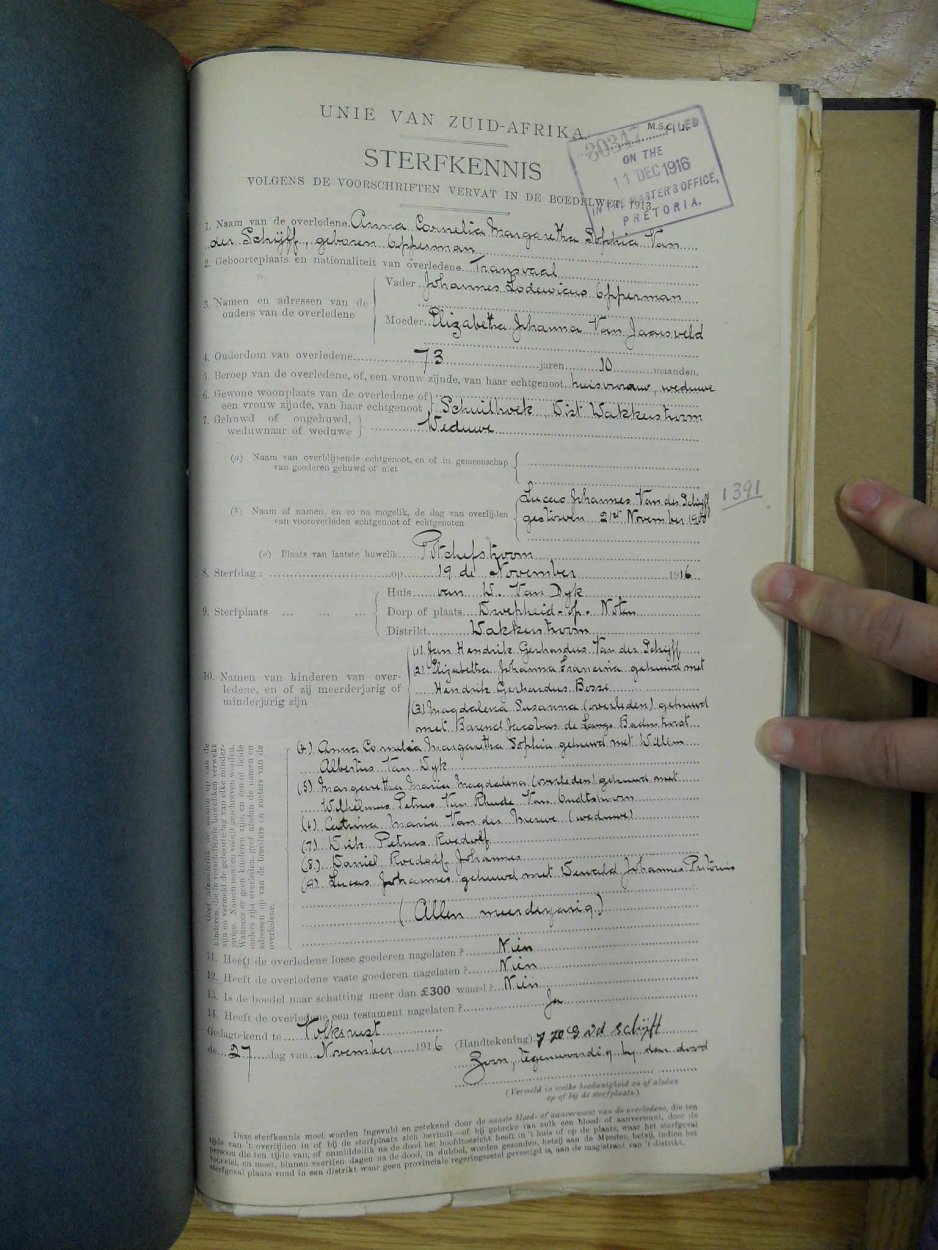 UNIE VAN ZUID-AFRIKA.
M.S.C.
20347 FILED
ON THE
11 DEC 1916
IN THE MASTER'S OFFICE,
PRETORIA.
STERFKENNIS
VOLGENS DE VOORSCHRIFTEN VERVAT IN DE BOEDELWET, 1913.
1. Naam van de overledene Anna Cornelia Margaretha Sophia Van
der Schijff, geboren Opperman
2. Geboorteplaats en nationaliteit van overledene Transvaal
3. Namen en adressen van de ouders van de overledene
Vader Johannes Lodewicus Opperman
Moeder Elizabetha Johanna Van Jaarsveld
4. Ouderdom van overledene 73 jaren 10 maanden.
5. Beroep van de overledene, of, een vrouw zijnde, van haar echtgenoot huisvrouw, weduwe
6. Gewone woonplaats van de overledene of
een vrouw zijnde, van haar echtgenoot Schuilhoek Dist Wakkerstroom
7. Gehuwd of ongehuwd,
weduwnaar of weduwe Weduwe
(a) Naam van overblijvende echtgenoot, en of in gemeenschap
van goederen gehuwd of niet
(b) Naam of namen, en zo na mogelik, de dag van overlijden
van vooroverleden echtgenoot of echtgenoten
Lucas Johannes Van der Schijff
gestorven 21st November
1391
(c) Plaats van laatste huwelik Potchefstroom
8. Sterfdag : op 19 de November 1916
9. Sterfplaats
Huis van W. Van Dyk
Dorp of plaats
Distrikt Wakkerstroom
10. Namen van kinderen van over-
ledene, en of zij meerderjarig of
minderjarig zijn
(1) Jan Hendrik Gerhardus Van der Schijff
(2) Elizabetha Johanna Francina gehuwd met
Hendrik Gerhardus
(3) Magdalena Susanna (overleden) gehuwd
met Barend Jacobus de Lange Badenhorst
(4) Anna Cornelia Margaretha Sophia gehuwd met Willem
Albertus Van Dyk
(5) Margaretha Maria Magdalena (overleden) gehuwd met
Wilhelmus Petrus Van Rheede Van Oudtshoorn
(6) Catrina Maria Van der Merwe (weduwe)
(7) Dirk Petrus Roedolf
(8) Daniel Roedolf Johannes
(9) Lucas Johannes gehuwd met Johannes Pretorius
(Allen meerderjarig.)
11. Heeft de overledene losse goederen nagelaten ? Nien
12. Heeft de overledene vaste goederen nagelaten ? Nien
13. Is de boedel naar schatting meer dan £300 waard ? Nien
14. Heeft de overledene een testament nagelaten ? Ja
Gedagtekend te Volksrust
de 27 dag van November 1916
(Handtekening) J H G v d Schijff
Zoon, tegenwoordig by den dood
(Vermeld in welke hoedanigheid en of aldan
op of bij de sterfplaats.)
Deze sterfkennis moet worden ingevuld en getekend door de naaste bloed- of aanverwant van de overledene, die ten
tijde van 't overlijden in of bij de sterfplaats zich bevindt—of bij gebreke van zulk een bloed- of aanverwant, door de
persoon die ten tijde van, of onmiddellik na de dood het hoofdtoezicht heeft in 't huis of op de plaats, waar het sterfgeval
voorviel, en moet, binnen veertien dagen na de dood, in dubbel, worden gezonden, hetzij aan de Meester, hetzij, indien het
sterfgeval plaats vond in een distrikt waar geen provinciale regeringszetel gevestigd is, aan de magistraat van 't distrikt.